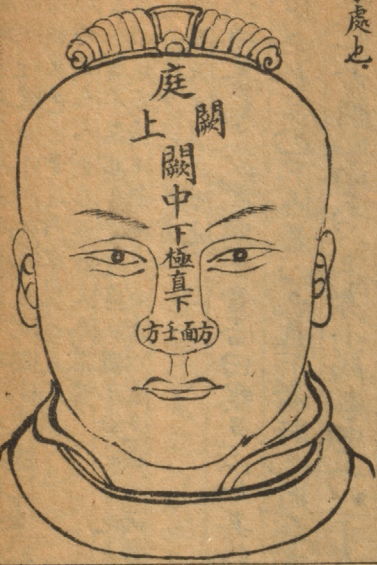 處也
庭
闕上
闕中
下極
直下
方面壬方